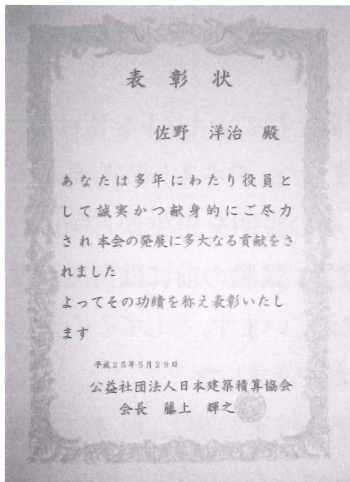 表彰状
佐野 洋治 殿
あなたは多年にわたり役員と
して誠実かつ献身的にご尽力
され本会の発展に多大なる貢献をさ
れました
よってその功績を称え表彰いたし
ます
平成25年5月29日
公益社団法人日本建築積算協会
会長 藤上 輝之